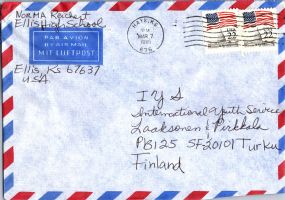 Norma Reichert
Ellis High School
PAR AVION
BY AIR MAIL
MIT LUFTPOST
Ellis, Ks 67637
USA
HAYS, KS
PM
MAR 7
676
22
22
I Y S
International Youth Service
Laaksonen & Pirkkala
PB125 SF-20101 Turku
Finland